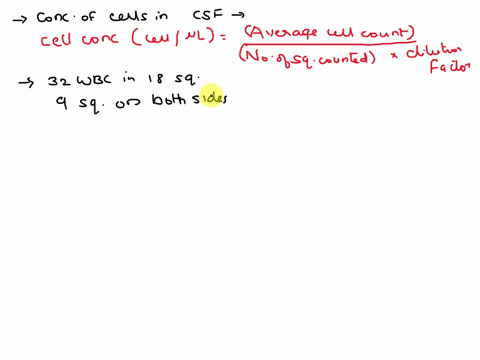 → Conc. of cells in CSF →
cell conc (cell/μL) = (Average cell count)
(No. of sq. counted) × dilution Factor
→ 32 WBC in 18 sq.
9 sq. on both sides